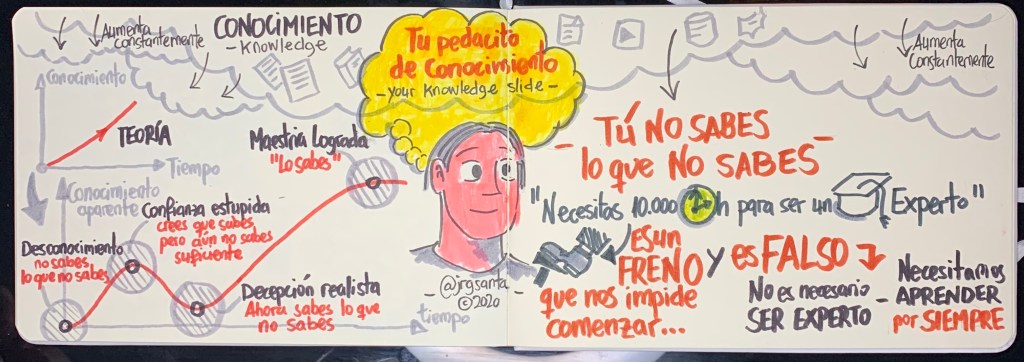 Aumenta
constantemente
CONOCIMIENTO
- Knowledge
Tu pedacito
de Conocimiento
- your Knowledge slide -
Aumenta
Constantemente
Conocimiento
TEORÍA
Tiempo
Conocimiento
aparente
Maestría Lograda
"Lo sabes"
Confianza estupida
crees que sabes,
pero aún no sabes
suficiente
Desconocimiento
no sabes
lo que no sabes
Decepción realista
Ahora sabes lo que
no sabes
tiempo
@jrgsanta
©2020
- TÚ NO SABES -
lo que NO SABES
"Necesitas 10.000 h para ser un Experto"
ES un
FRENO
que nos impide
comenzar...
y es FALSO
No es necesario
SER EXPERTO -
Necesitamos
APRENDER
por SIEMPRE